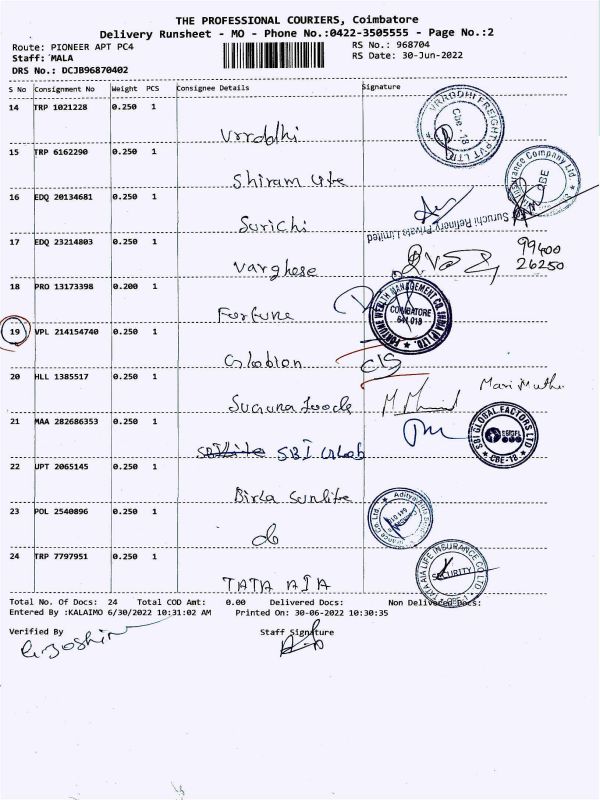 THE PROFESSIONAL COURIERS, Coimbatore
Delivery Runsheet - MO - Phone No.:0422-3505555 - Page No.:2
Route: PIONEER APT PC4 RS No.: 968704
Staff: MALA RS Date: 30-Jun-2022
DRS No.: DCJB96870402
S No Consignment No Weight PCS Consignee Details Signature
14 TRP 1021228 0.250 1
VRADDHI FREIGHT PVT LTD Cbe - 18
Vrddhi
15 TRP 6162290 0.250 1
Insurance Company Ltd. CBE
Shiram Life
16 EDQ 20134681 0.250 1
Surichi
Suruchi Refinery Private Limited
17 EDQ 23214803 0.250 1
99400
26250
Varghese
18 PRO 13173398 0.200 1
FORTUNE WEALTH MANAGEMENT CO. INDIA (P) LTD. COIMBATORE 641 018
Fortune
19 VPL 214154740 0.250 1
20 HLL 1385517 0.250 1
Mari Muthu
Suguna Foods
21 MAA 282686353 0.250 1
SBI GLOBAL FACTORS LTD CBE-18
SBI Glob
22 UPT 2065145 0.250 1
Birla Sunlife
23 POL 2540896 0.250 1
do
24 TRP 7797951 0.250 1
TATA AIA LIFE INSURANCE CO LTD SECURITY
TATA AIA
Total No. Of Docs: 24 Total COD Amt: 0.00 Delivered Docs: Non Delivered Docs:
Entered By :KALAIMO 6/30/2022 10:31:02 AM Printed On: 30-06-2022 10:30:35
Verified By Staff Signature